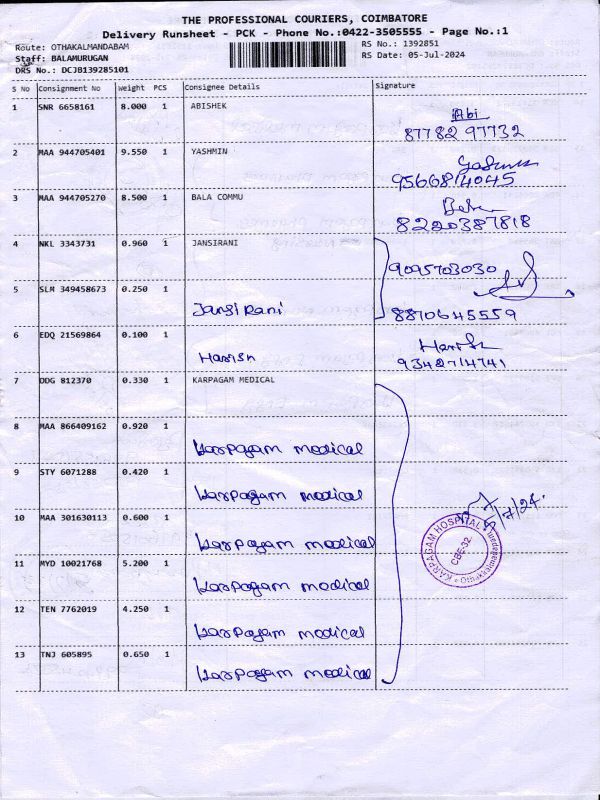 THE PROFESSIONAL COURIERS, COIMBATORE
Delivery Runsheet - PCK - Phone No.:0422-3505555 - Page No.:1
Route: OTHAKALMANDABAM
RS No.: 1392851
Staff: BALAMURUGAN
RS Date: 05-Jul-2024
DRS No.: DCJB139285101
S No Consignment No Weight PCS Consignee Details Signature
1 SNR 6658161 8.000 1 ABISHEK Abi
87782 97732
2 MAA 944705401 9.550 1 YASHMIN
9566814045
3 MAA 944705270 8.500 1 BALA COMMU
8220387818
4 NKL 3343731 0.960 1 JANSIRANI
9095703030
5 SLM 349458673 0.250 1
Jansi Rani 8870645559
6 EDQ 21569864 0.100 1
Harish 9342714741
7 DDG 812370 0.330 1 KARPAGAM MEDICAL
8 MAA 866409162 0.920 1
Karpagam medical
9 STY 6071288 0.420 1
Karpagam medical
10 MAA 301630113 0.600 1
Karpagam medical
/7/24
KARPAGAM HOSPITAL
CBE-32
11 MYD 10021768 5.200 1
Karpagam medical
12 TEN 7762019 4.250 1
Karpagam medical
13 TNJ 605895 0.650 1
Karpagam medical